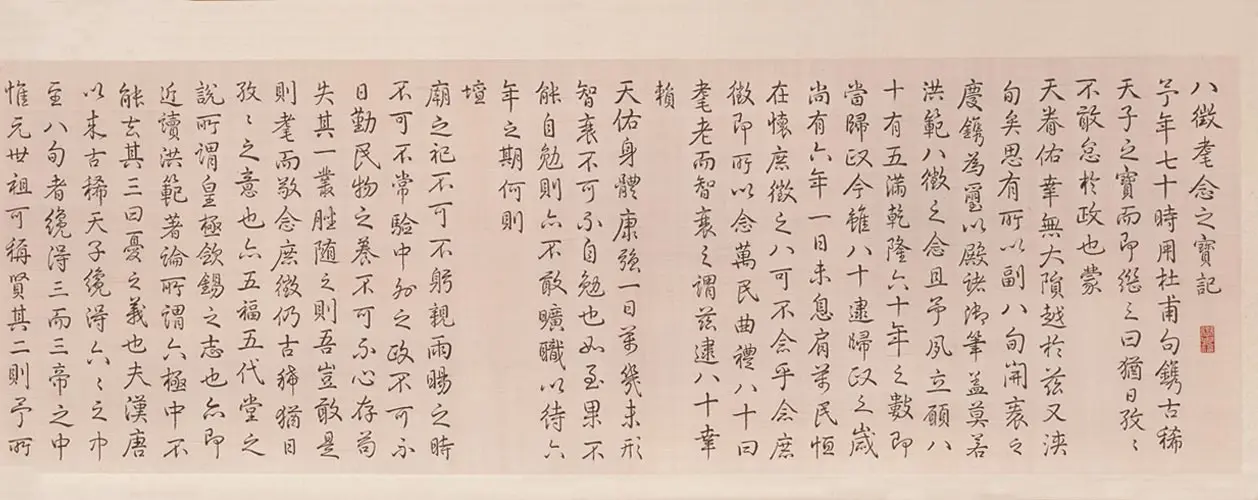 八徵耄念之寶記
予年七十時用杜甫句鐫古稀
天子之寶而即繼之曰猶日孜〻
不敢怠於政也蒙
天眷佑幸無大隕越於茲又浹
旬矣思有所以副八旬開袠之
慶鐫為璽以殿諸御筆蓋莫若
洪範八徵之念且予夙立願八
十有五滿乾隆六十年之數即
當歸政今雖八十逮歸政之歲
尚有六年一日未息肩萬民恒
在懷庶徵之八可不念乎念庶
徵即所以念萬民曲禮八十曰
耄老而智衰之謂茲逮八十幸
賴
天佑身體康强一日萬幾未形
智衰不可不自勉也如至果不
能自勉則亦不敢曠職以待六
年之期何則
壇
廟之祀不可不躬親雨暘之時
不可不常驗中外之政不可不
日勤民物之養不可不心存苟
失其一叢脞随之則吾豈敢是
則耄而敬念庶徵仍古稀猶日
孜〻之意也亦五福五代堂之
說所謂皇極斂錫之志也亦即
近讀洪範著論所謂六極中不
能去其三曰憂之義也夫漢唐
以來古稀天子纔得六〻之中
至八旬者纔得三而三帝之中
惟元世祖可稱賢其二則予所